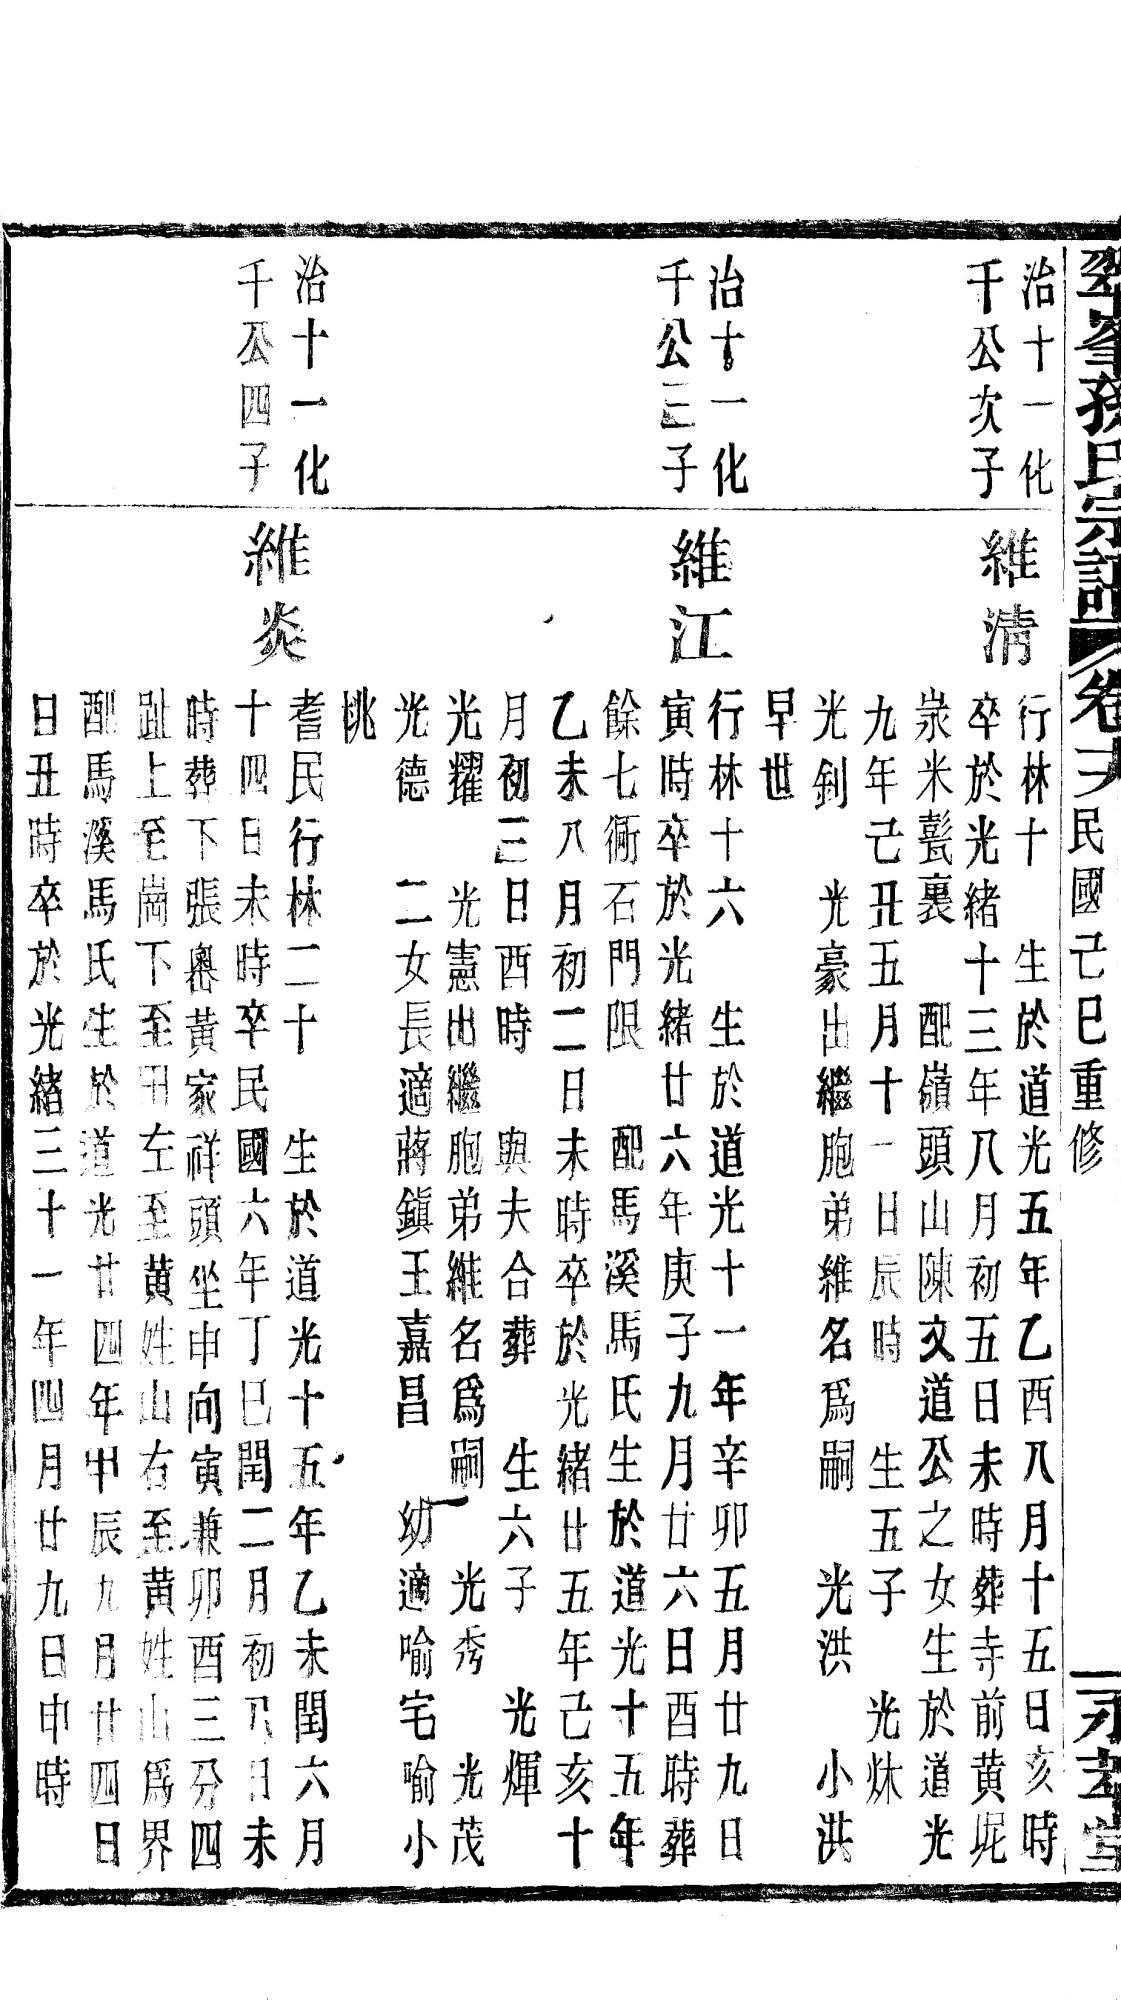 孫氏宗譜 卷 民國己巳重修
治十一化
千公次子
維清
行林十 生於道光五年乙酉八月十五日亥時
卒於光緒十三年八月初五日未時葬寺前黄坭
米裏 配嶺頭山陳文道公之女生於道光
九年己丑五月十一日辰時 生五子 光炑
光釗 光豪出繼胞弟維名爲嗣 光洪 小洪
早世
治十一化
千公三子
維江
行林十六 生於道光十一年辛卯五月廿九日
寅時卒於光緒廿六年庚子九月廿六日酉時葬
餘七衕石門限 配馬溪馬氏生於道光十五年
乙未八月初二日未時卒於光緒廿五年己亥十
月初三日酉時 與夫合葬 生六子 光煇
光耀 光憲出繼胞弟維名爲嗣 光秀 光茂
光德 二女長適蔣鎮王嘉昌 幼適喻宅喻小
桃
治十一化
千公四子
維炎
耆民行林二十 生於道光十五年乙未閏六月
十四日未時卒民國六年丁巳閏二月初八日未
時葬下張黃家祥頭坐申向寅兼卯酉三分四
趾上至崗下至田左至黄姓山右至黄姓山爲界
配馬溪馬氏生於道光廿四年甲辰九月廿四日
日丑時卒於光緒三十一年四月廿九日申時